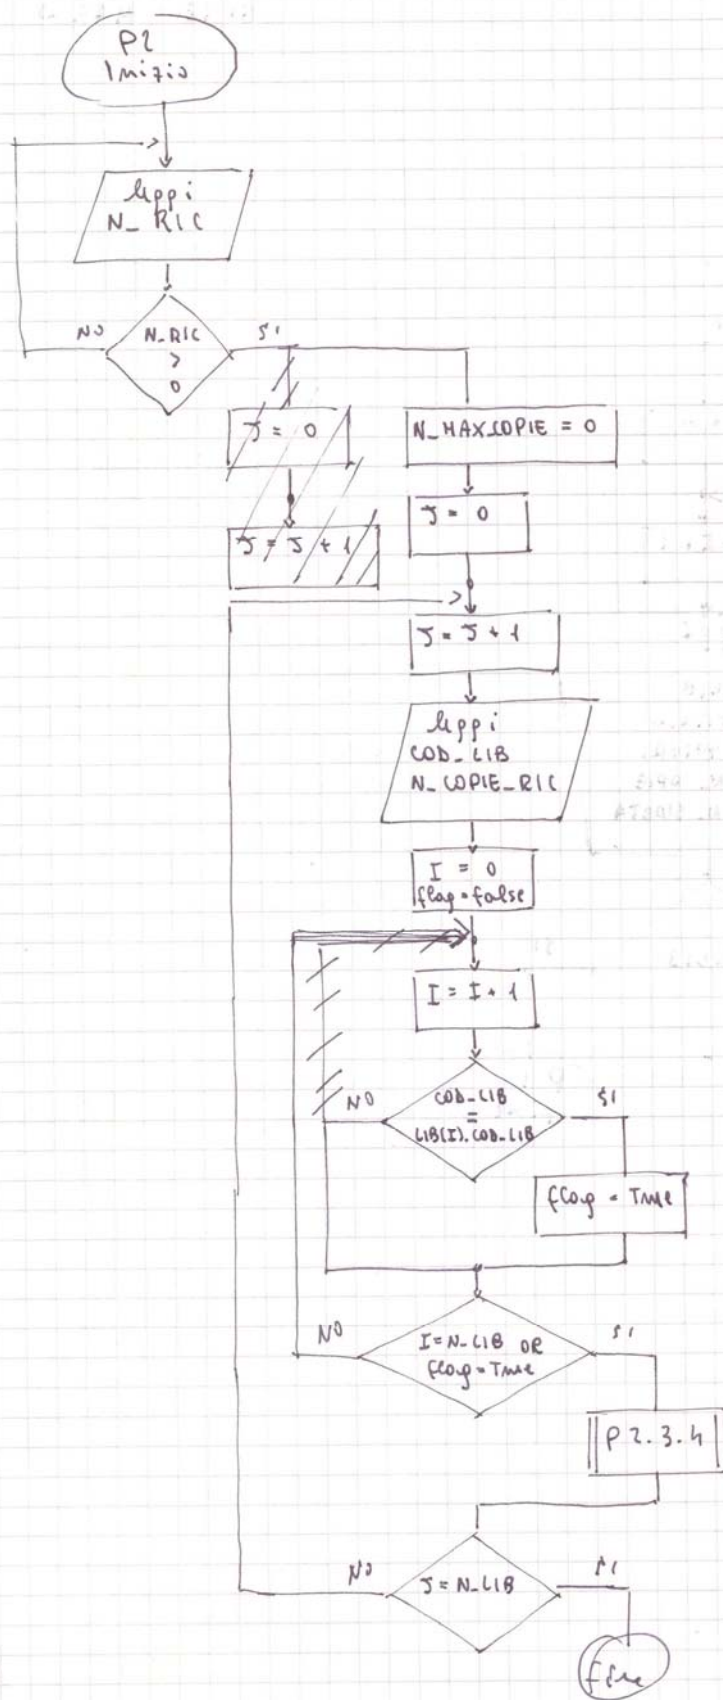 P2
Inizio
leggi
N_RIC
NO
N_RIC
>
0
SI
J = 0
N_MAXCOPIE = 0
J = J + 1
J = 0
J = J + 1
leggi
COD_LIB
N_COPIE_RIC
I = 0
flag = false
I = I + 1
NO
COD_LIB
=
LIB(I).COD_LIB
SI
flag = True
NO
I = N_LIB OR
flag = True
SI
P2.3.4
NO
J = N_LIB
SI
fine